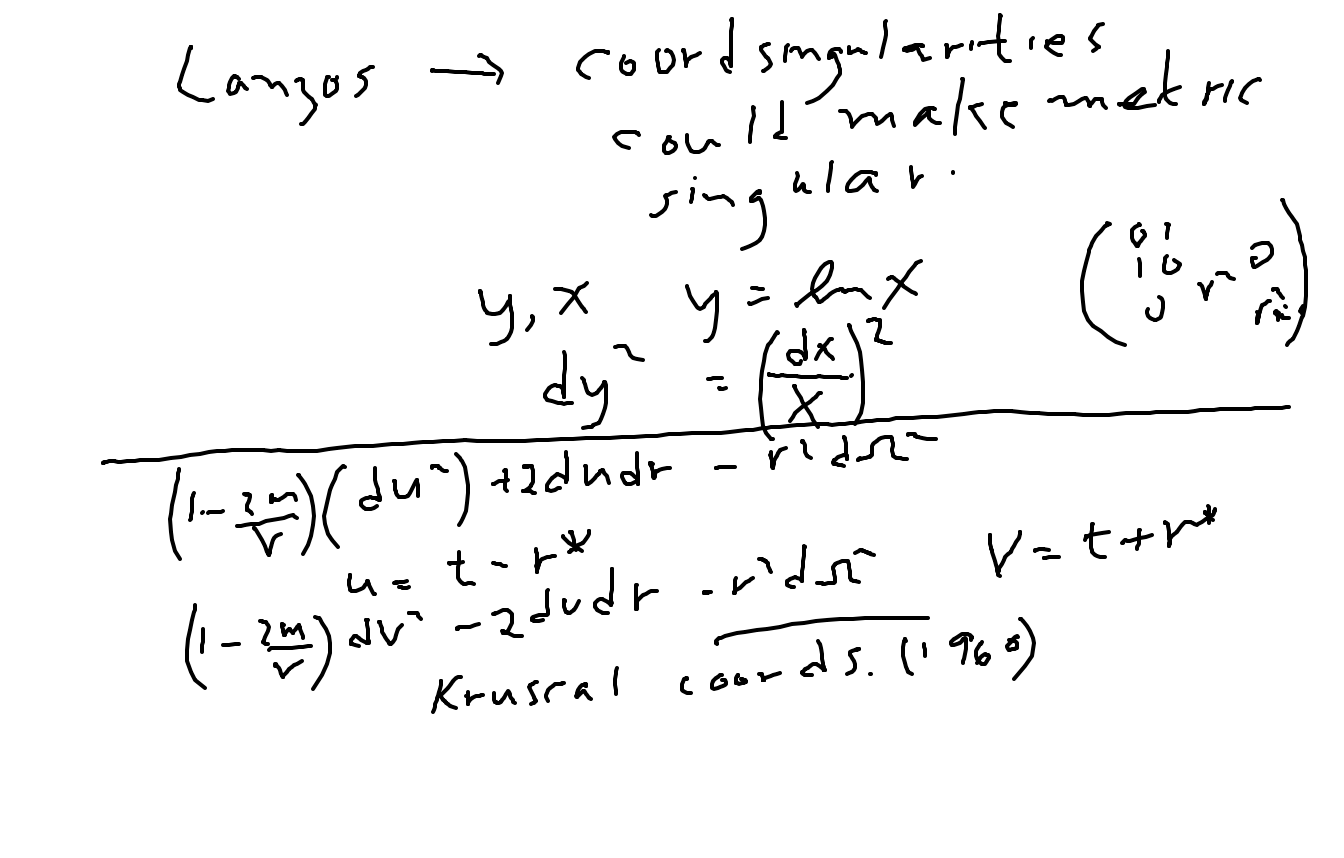 Lanzos → coord singularities
could make metric
singular.
y, x   y = ln x
dy² = (dx/x)²
( 0 1
1 0 r² 0
0 r² )
(1 - 2m/r)(du²) + 2dudr - r²dΩ²
u = t - r*
V = t + r*
(1 - 2m/r) dv² - 2dvdr - r²dΩ²
Kruscal coords. (1960)